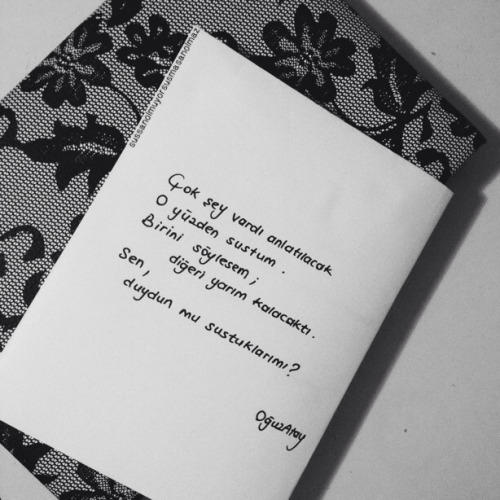 sussanolmuyorsusmasanolmaz
Çok şey vardı anlatılacak
O yüzden sustum.
Birini söylesem;
diğeri yarım kalacaktı.
Sen,
duydun mu sustuklarımı?
OğuzAtay